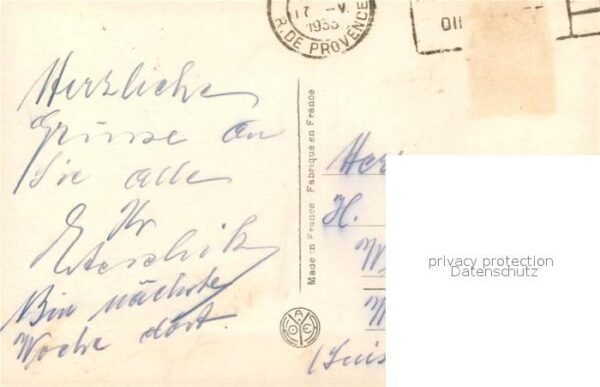 17 -V.
1933
R. DE PROVENCE
Herzliche
Grüsse an
Sie alle
Ihr
Bin nächste
Woche dort.
Made in France Fabriqué en France
H.
(Suis
privacy protection
Datenschutz